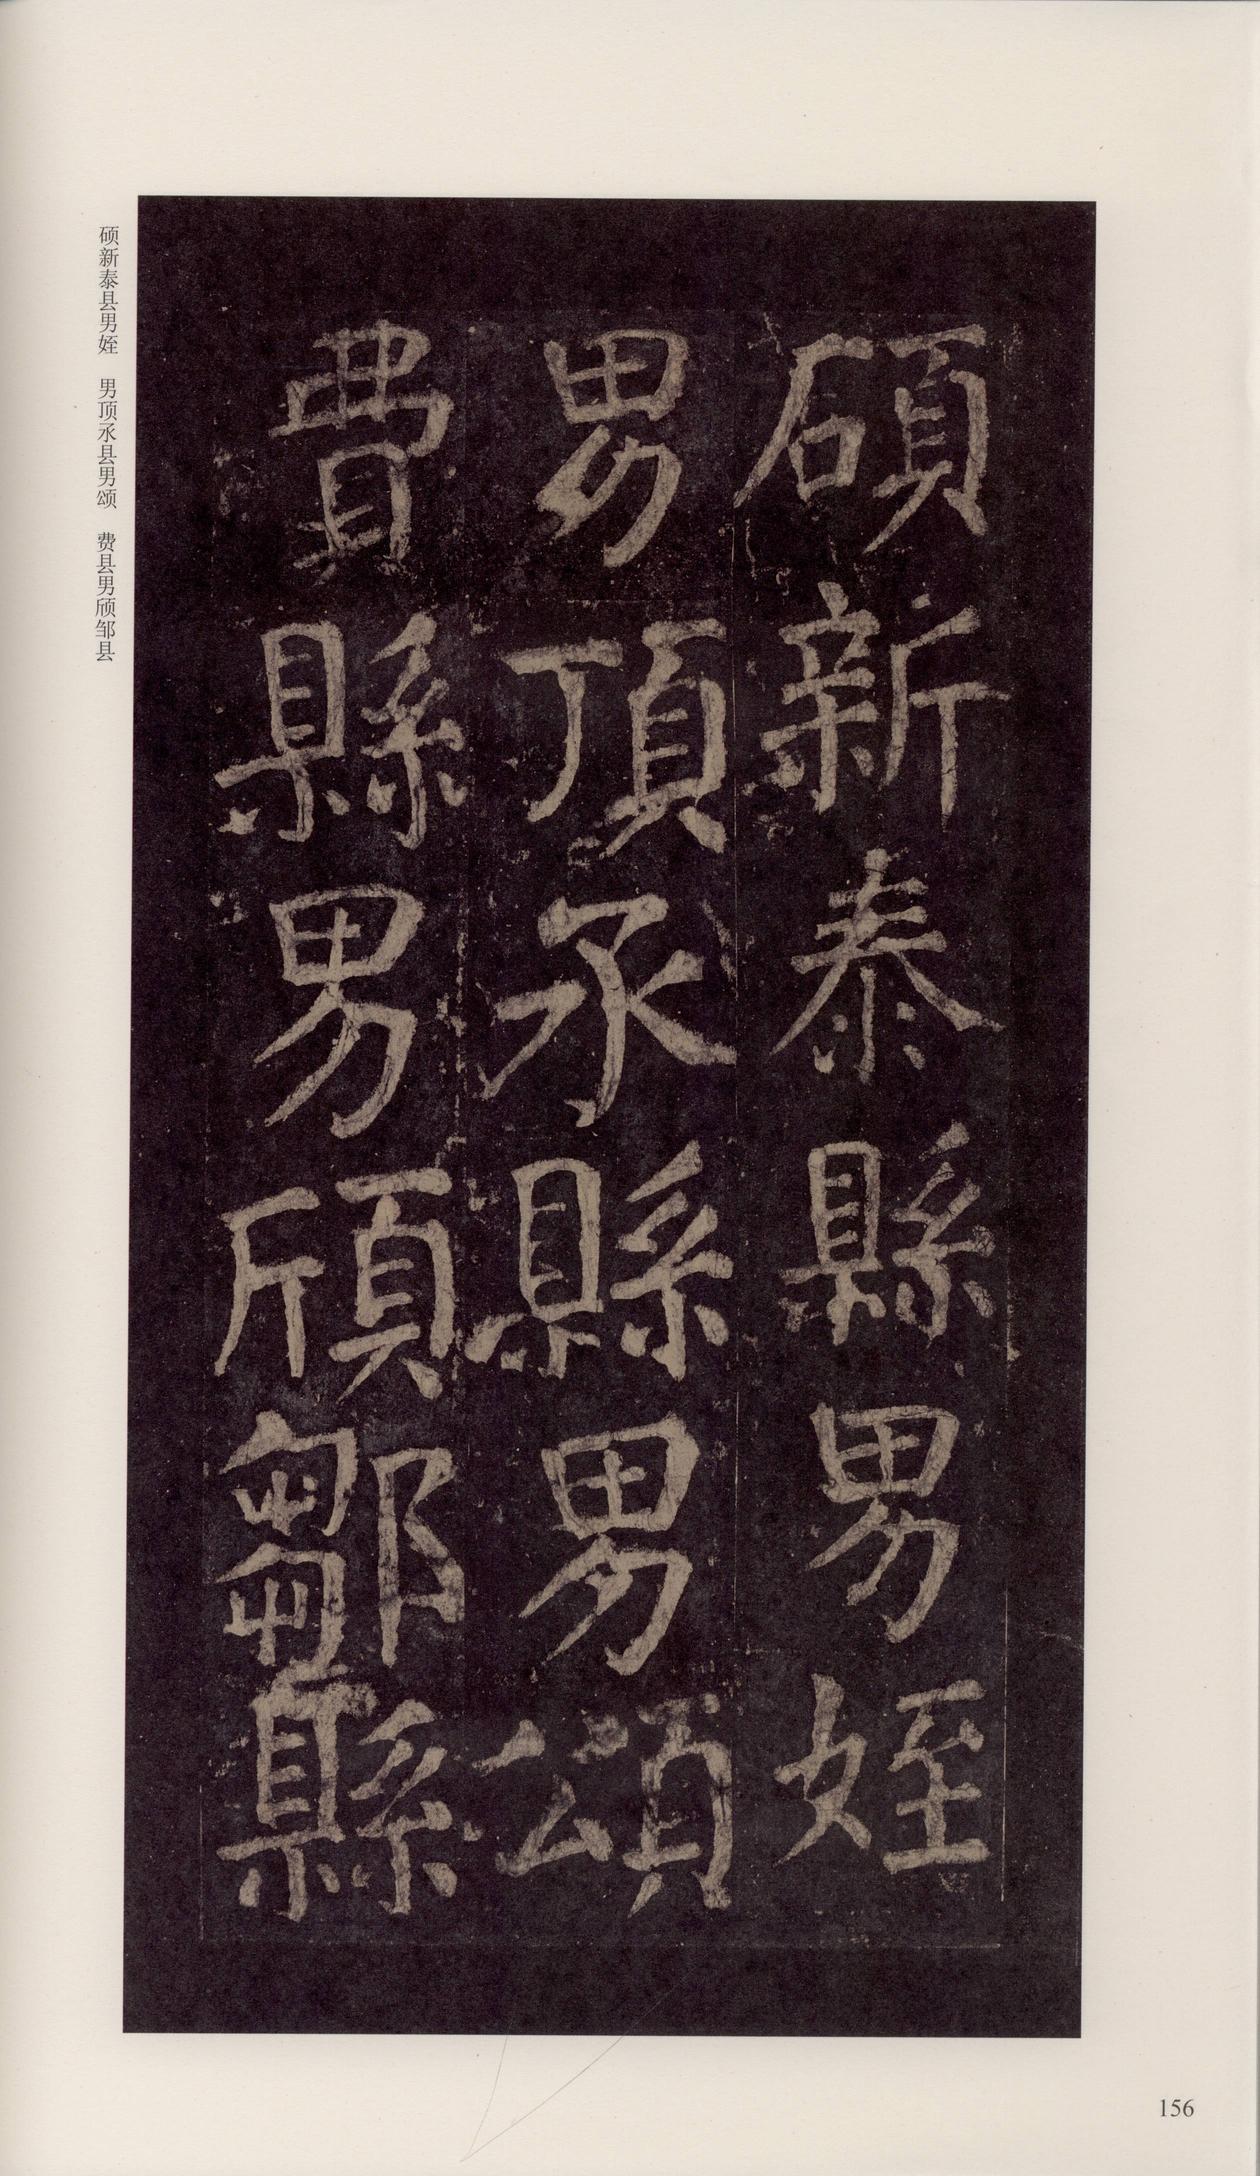 碩新泰縣男姪
男頂承縣男頌
費縣男頎鄒縣
硕新泰县男姪 男顶承县男颂 费县男颀邹县
156